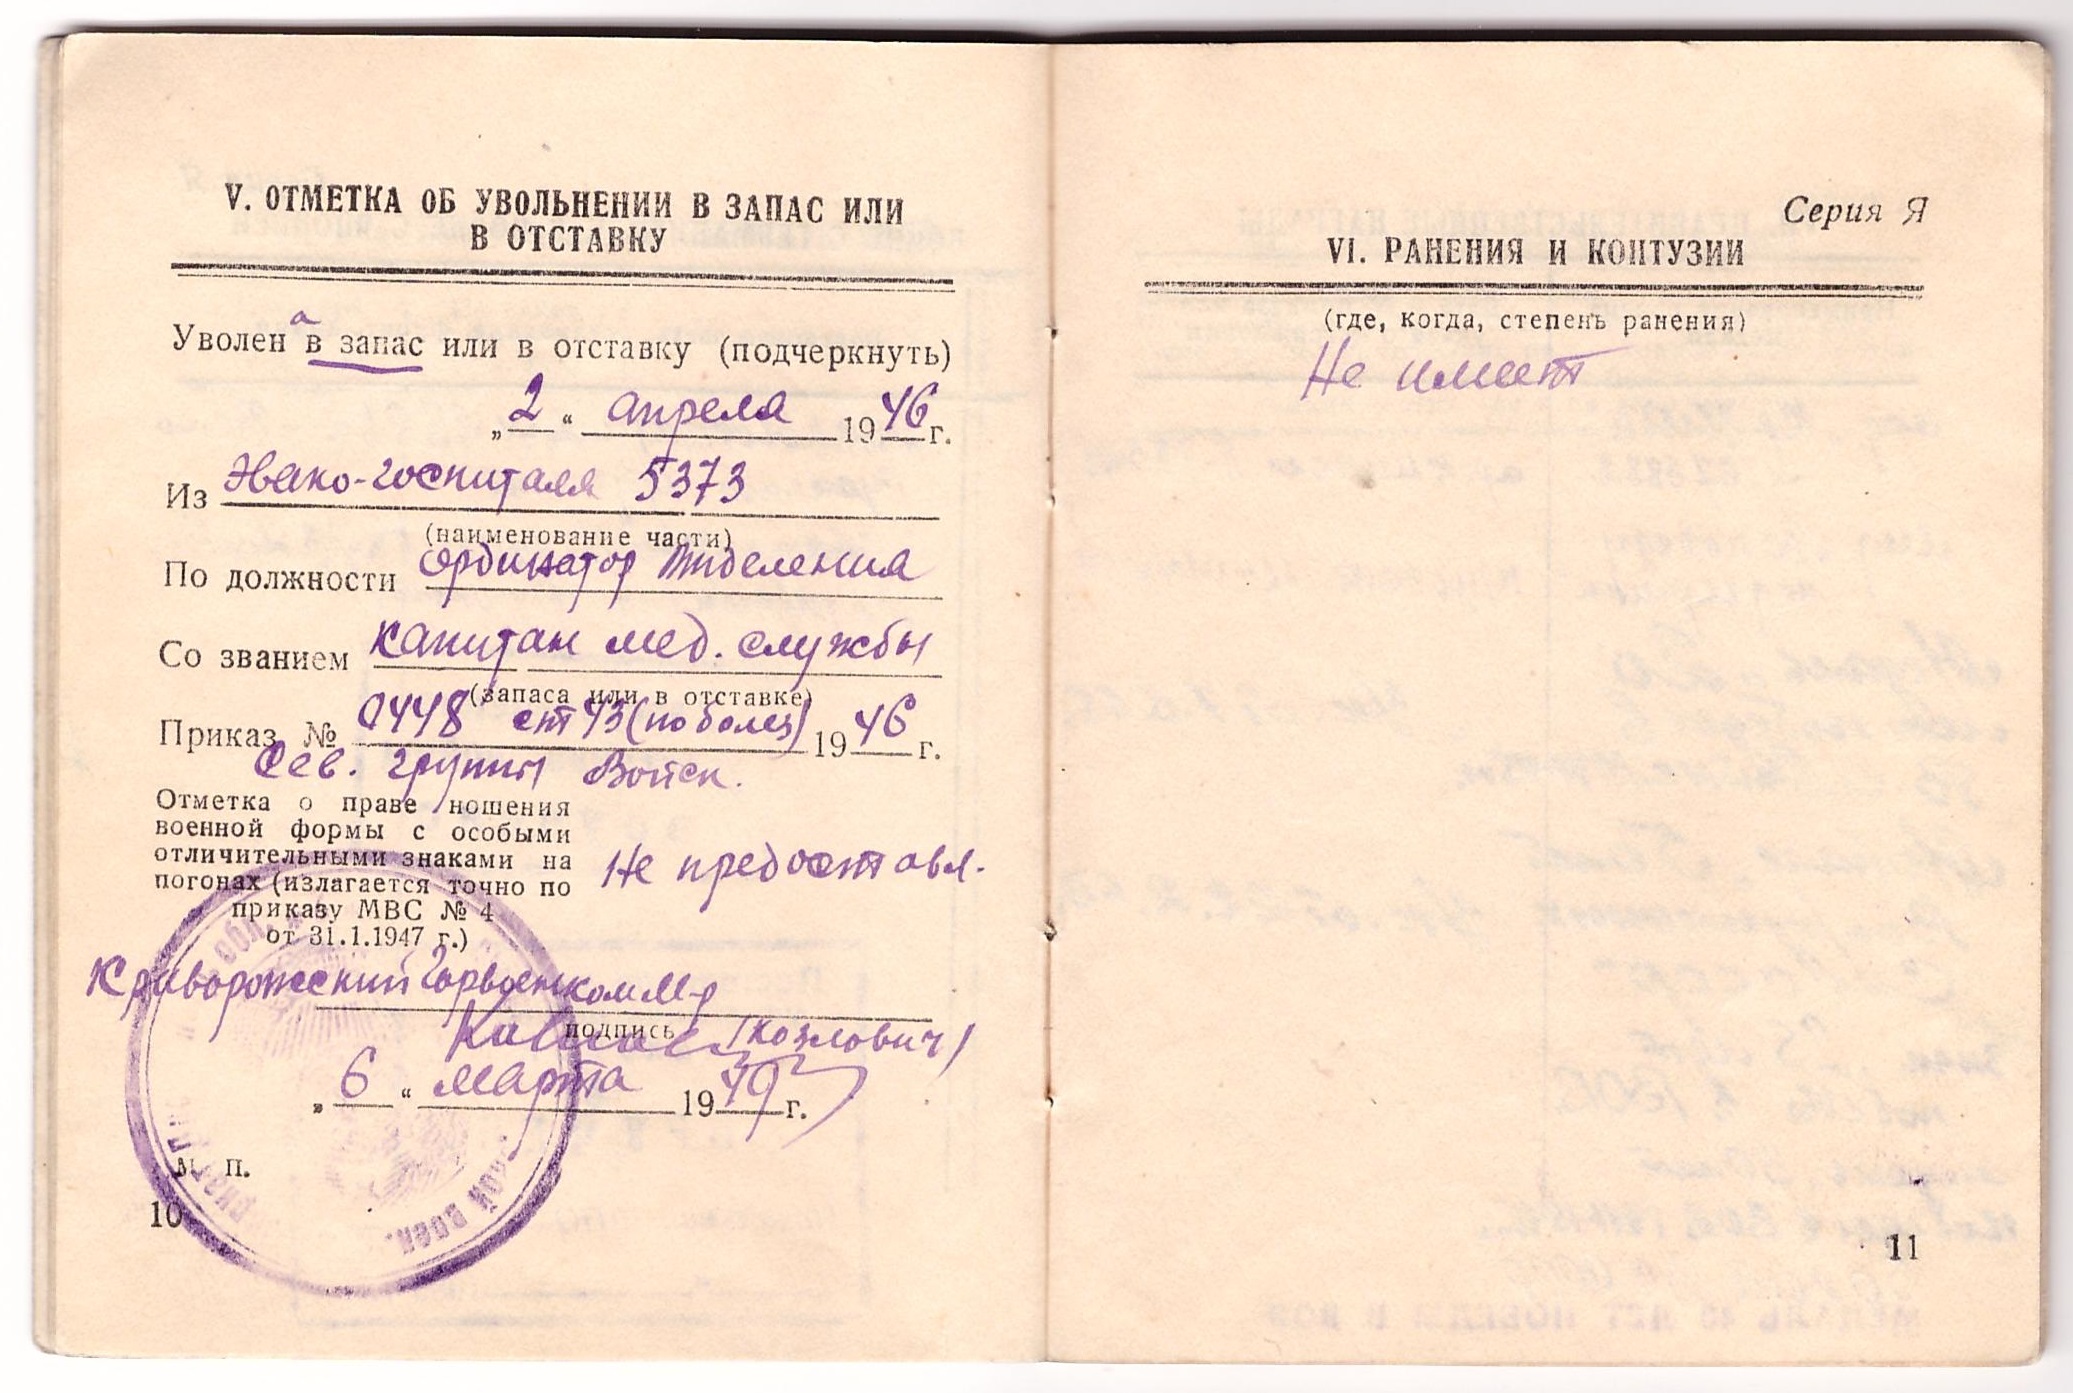 V. ОТМЕТКА ОБ УВОЛЬНЕНИИ В ЗАПАС ИЛИ
В ОТСТАВКУ
Уволена в запас или в отставку (подчеркнуть)
„2“ апреля 1946 г.
Из Эвако-госпиталя 5373
(наименование части)
По должности ординатор отделения
Со званием капитан мед. службы
(запаса или в отставке)
Приказ № 0448 ст 43 (по болез) 1946 г.
Сев. группы Войск.
Отметка о праве ношения
военной формы с особыми
отличительными знаками на
погонах (излагается точно по
приказу МВС № 4
от 31.1.1947 г.)
Не предоставл.
Криворожский Горвоенком М-р
подпись (Козлович)
„6“ марта 1949 г.
М. П.
10
Серия Я
VI. РАНЕНИЯ И КОНТУЗИИ
(где, когда, степень ранения)
Не имеет
11